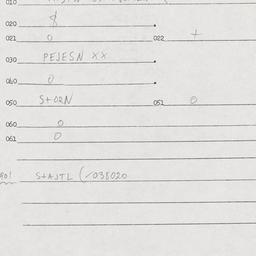 010
020 $
021 0 022 +
030 PEJESN XX
040 0
050 STORN 051 0
060 0
061 0
STAJTL (-038020